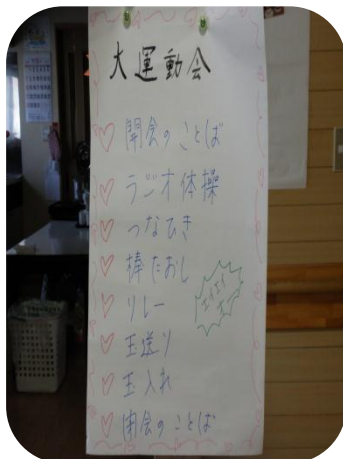 大運動会
♡ 開会のことば
♡ ラジオ体操
♡ つなひき
♡ 棒たおし
♡ リレー
♡ 玉送り
♡ 玉入れ
♡ 閉会のことば